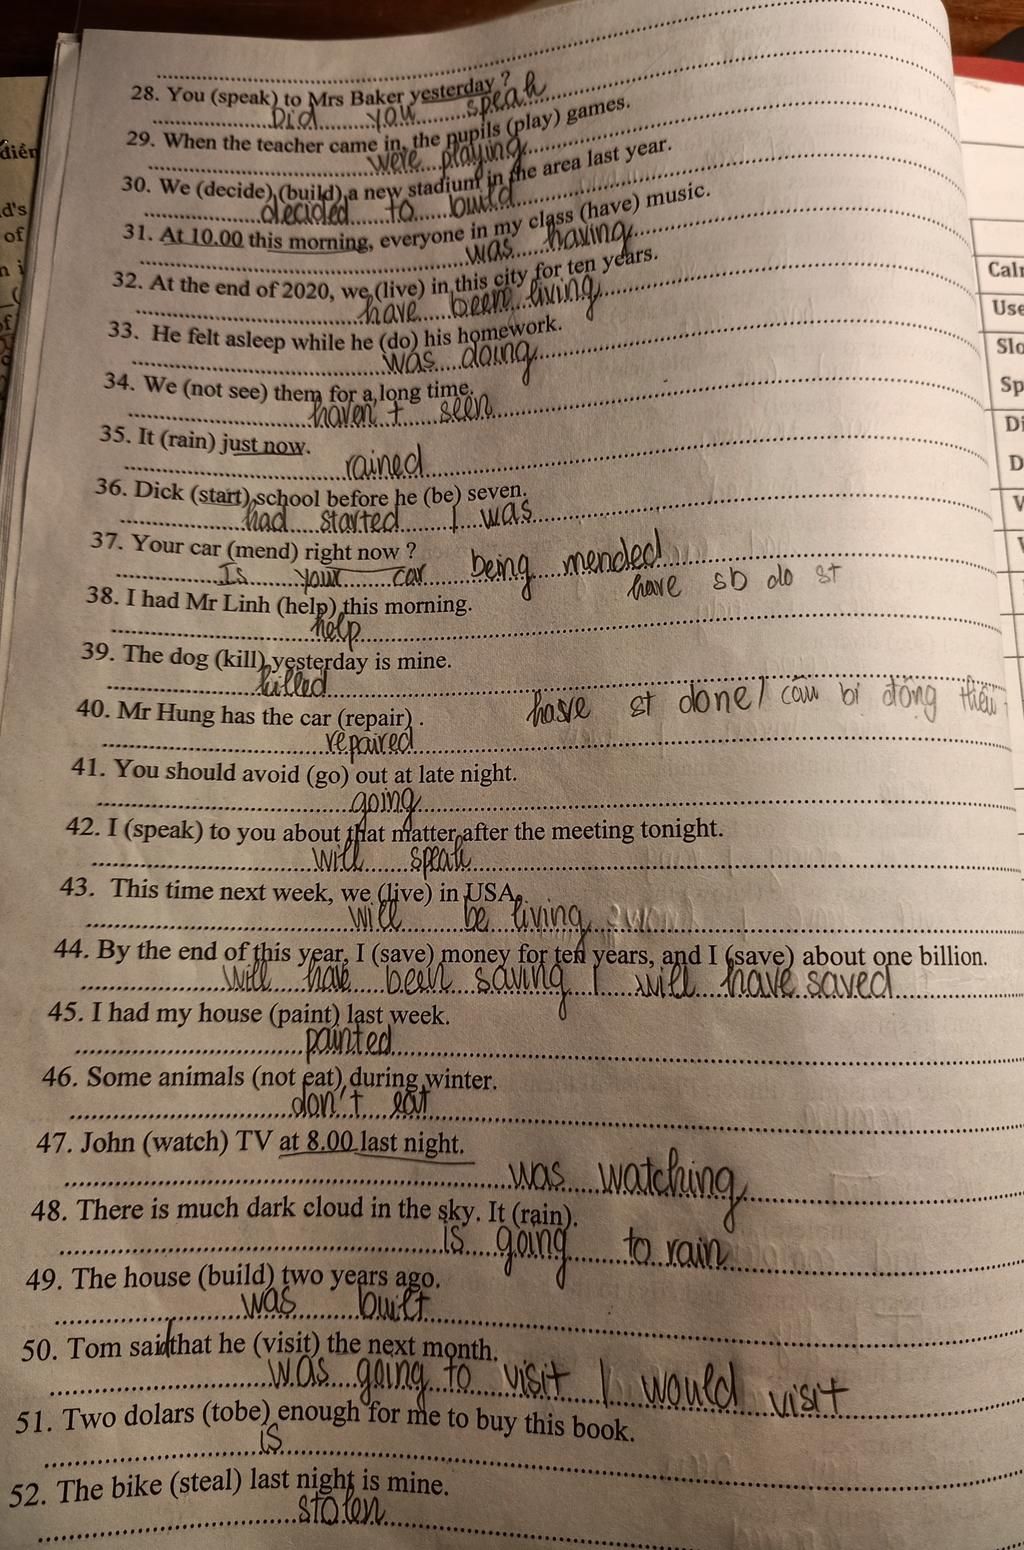 28. You (speak) to Mrs Baker yesterday ?
Did you speak
29. When the teacher came in, the pupils (play) games.
were playing
30. We (decide) (build) a new stadium in the area last year.
decided to build
31. At 10.00 this morning, everyone in my class (have) music.
was having
32. At the end of 2020, we (live) in this city for ten years.
have been living
33. He felt asleep while he (do) his homework.
was doing
34. We (not see) them for a long time.
haven't seen
35. It (rain) just now.
rained
36. Dick (start) school before he (be) seven.
had started / was
37. Your car (mend) right now ?
Is your car being mended
have sb do st
38. I had Mr Linh (help) this morning.
help
39. The dog (kill) yesterday is mine.
killed
have st done / câu bị động thiếu
40. Mr Hung has the car (repair) .
repaired
41. You should avoid (go) out at late night.
going
42. I (speak) to you about that matter after the meeting tonight.
will speak
43. This time next week, we (live) in USA.
will be living
44. By the end of this year, I (save) money for ten years, and I (save) about one billion.
will have been saving / will have saved
45. I had my house (paint) last week.
painted
46. Some animals (not eat) during winter.
don't eat
47. John (watch) TV at 8.00 last night.
was watching
48. There is much dark cloud in the sky. It (rain).
is going to rain
49. The house (build) two years ago.
was built
50. Tom said that he (visit) the next month.
was going to visit / would visit
51. Two dolars (tobe) enough for me to buy this book.
is
52. The bike (steal) last night is mine.
stolen
diễn
d's
of
Use
Slo
Sp
D